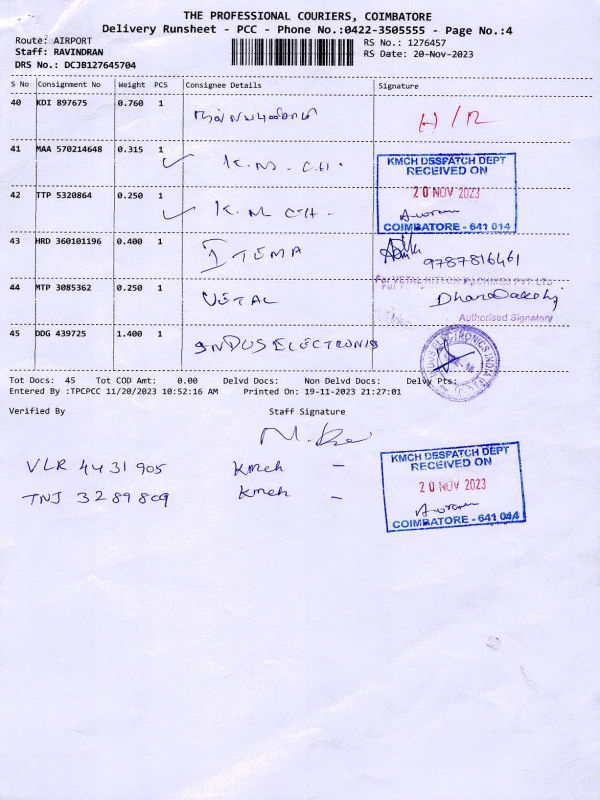 THE PROFESSIONAL COURIERS, COIMBATORE
Delivery Runsheet - PCC - Phone No.:0422-3505555 - Page No.:4
Route: AIRPORT
Staff: RAVINDRAN
DRS No.: DCJB127645704
RS No.: 1276457
RS Date: 20-Nov-2023
S No Consignment No Weight PCS Consignee Details Signature
40 KDI 897675 0.760 1 H/R
41 MAA 570214648 0.315 1 K.M - C.H.
KMCH DESPATCH DEPT
RECEIVED ON
20 NOV 2023
COIMBATORE - 641 014
42 TTP 5320864 0.250 1 K.M C-H-
43 HRD 360101196 0.400 1 I TEMA 9787816461
44 MTP 3085362 0.250 1 VETAL
For VETAL HITECH MACHINGS PVT. LTD
Authorised Signatory
45 DDG 439725 1.400 1 INDUS ELECTRONIS
Tot Docs: 45 Tot COD Amt: 0.00 Delvd Docs: Non Delvd Docs: Delvy Pts:
Entered By :TPCPCC 11/20/2023 10:52:16 AM Printed On: 19-11-2023 21:27:01
Verified By Staff Signature
VLR 4431905 Kmch -
TNJ 3289809 Kmch -
KMCH DESPATCH DEPT
RECEIVED ON
20 NOV 2023
COIMBATORE - 641 044